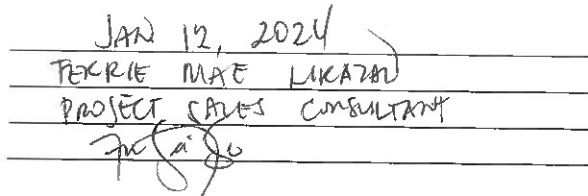 JAN 12, 2024
FERRIE MAE LIKAZAN
PROJECT SALES CONSULTANT